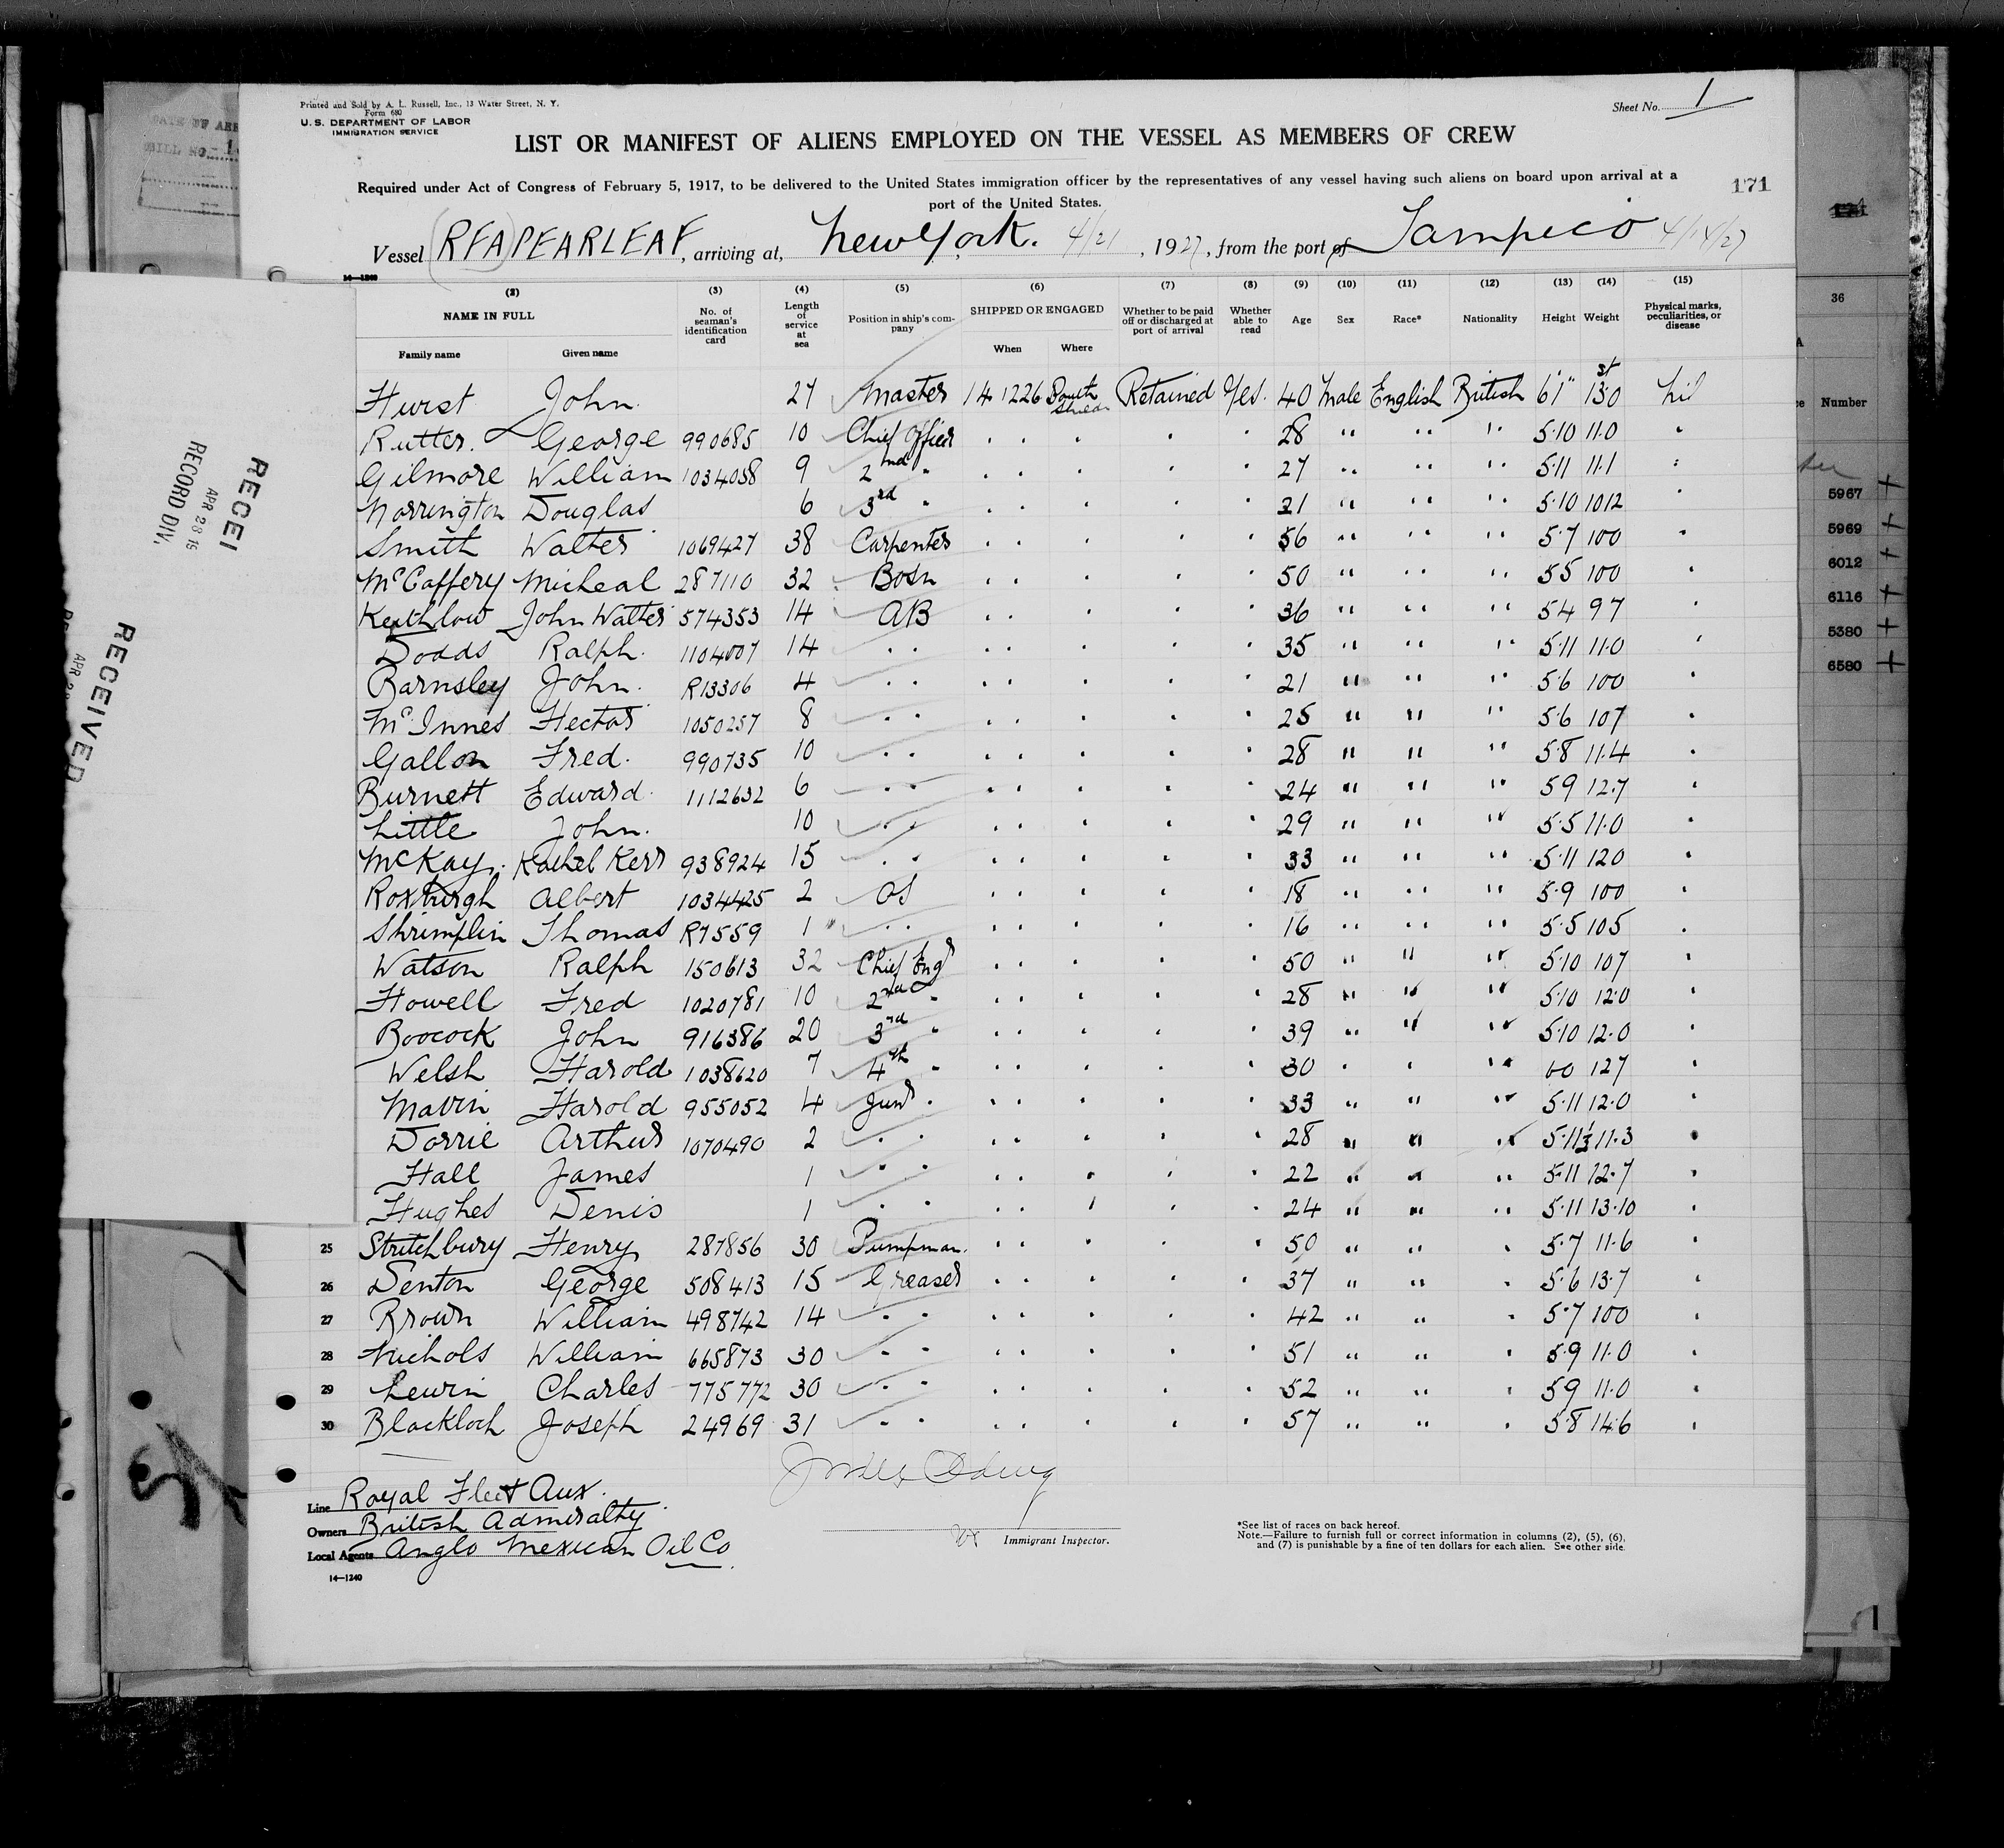 Printed and Sold by A. L. Russell, Inc., 13 Water Street, N. Y.
Form 680
U. S. DEPARTMENT OF LABOR
IMMIGRATION SERVICE
Sheet No. 1
LIST OR MANIFEST OF ALIENS EMPLOYED ON THE VESSEL AS MEMBERS OF CREW
Required under Act of Congress of February 5, 1917, to be delivered to the United States immigration officer by the representatives of any vessel having such aliens on board upon arrival at a
port of the United States.
171
Vessel (RFA) PEARLEAF, arriving at, New York. 4/21, 1927, from the port of Tampico 4/14/27
(2) (3) (4) (5) (6) (7) (8) (9) (10) (11) (12) (13) (14) (15)
NAME IN FULL No. of seaman's identification card Length of service at sea Position in ship's company SHIPPED OR ENGAGED Whether to be paid off or discharged at port of arrival Whether able to read Age Sex Race* Nationality Height Weight Physical marks, peculiarities, or disease
Family name Given name When Where
Hurst John. 27 Master 14 12 26 South Shields Retained Yes. 40 Male English British 6'1" 13.0 st Nil
Rutter. George 990685 10 Chief Officer . . . . . 28 " " " 5.10 11.0 "
Gilmore William 1034058 9 2nd " . . . . . 27 " " " 5.11 11.1 "
Norrington Douglas 6 3rd " . . . . . 21 " " " 5.10 10 12 "
Smith Walter 1069427 38 Carpenter . . . . . 56 " " " 5.7 100 "
McCaffery Micheal 287110 32 Bosn . . . . . 50 " " " 55 100 "
Keithlow John Walter 574353 14 AB . . . . 36 " " " 54 97 "
Dodds Ralph. 1104007 14 . . . . . . . 35 " " " 5.11 11.0 "
Barnsley John. R13306 4 . . . . . . . 21 " " " 5.6 100 "
McInnes Hector 1050257 8 . . . . . . . 25 " " " 5.6 107 "
Gallon Fred. 990735 10 . . . . . . . 28 " " " 5.8 11.4 "
Burnett Edward. 1112632 6 . . . . . . . 24 " " " 59 12.7 "
Little John. 10 . . . . . . . 29 " " " 5.5 11.0 "
McKay. Kerr 938924 15 . . . . . . . 33 " " " 5.11 120 "
Roxburgh Albert 1034425 2 OS . . . . . 18 " " " 5.9 100 "
Shrimplin Thomas R7559 1 . . . . . . . 16 " " " 5.5 105 "
Watson Ralph 150613 32 Chief Engr . . . . . 50 " " " 5.10 107 "
Howell Fred 1020781 10 2nd " . . . . . 28 " " " 5.10 12.0 "
Boocock John 916386 20 3rd " . . . . . 39 " " " 5.10 12.0 "
Welsh Harold 1038620 7 4th " . . . . . 30 " " " 60 127 "
Mavin Harold 955052 4 Junr . . . . . . 33 " " " 5.11 12.0 "
Dorrie Arthur 1070490 2 . . . . . . . 28 " " " 5.11½ 11.3 "
Hall James 1 . . . . . . . 22 " " " 5.11 12.7 "
Hughes Denis 1 . . . . . . . 24 " " " 5.11 13.10 "
25 Stritchbury Henry 287856 30 Pumpman. . . . . . 50 " " " 5.7 11.6 "
26 Denton George 508413 15 Greaser . . . . . 37 " " " 5.6 13.7 "
27 Brown William 498742 14 . . . . . . . 42 " " " 5.7 100 "
28 Nichols William 665873 30 . . . . . . . 51 " " " 5.9 11.0 "
29 Lewin Charles 775772 30 . . . . . . . 52 " " " 59 11.0 "
30 Blacklock Joseph 24969 31 . . . . . . . 57 " " " 5.8 14.6 "
Line Royal Fleet Aux.
Owners British Admiralty
Local Agents Anglo Mexican Oil Co.
14—1240
Immigrant Inspector.
*See list of races on back hereof.
Note.—Failure to furnish full or correct information in columns (2), (5), (6),
and (7) is punishable by a fine of ten dollars for each alien. See other side.
RECEI
APR 28 19
RECORD DIV.
RECEIVED
APR
BILL NO.
36
Number
5967 +
5969 +
6012 +
6116 +
5380 +
6580 +